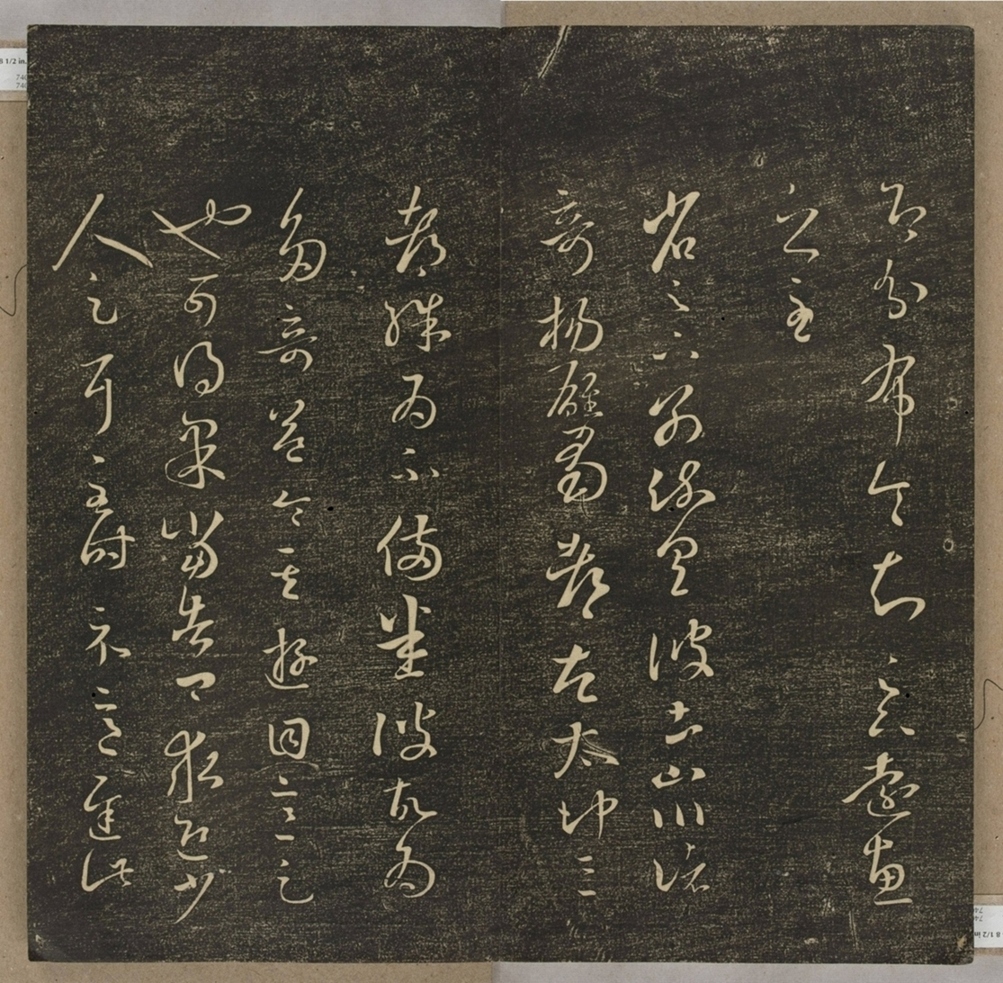 即分布令知足下遠惠
之至
省足下別疏具彼土山川諸
奇揚雄蜀都左太沖三
都殊為不備悉彼故為
多奇益令其遊目意足
也可得果當告卿求迎少
人足耳至時示意遲此